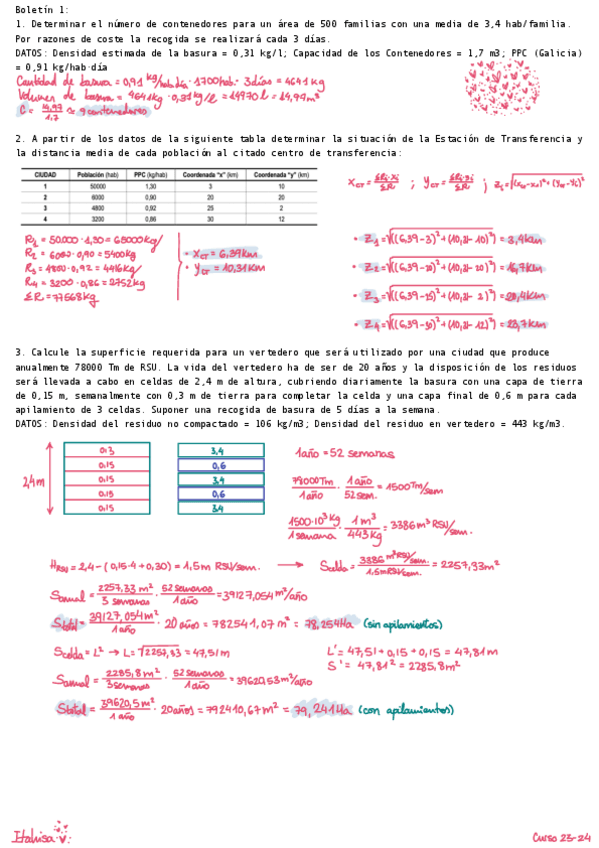 Boletín 1:
1. Determinar el número de contenedores para un área de 500 familias con una media de 3,4 hab/familia.
Por razones de coste la recogida se realizará cada 3 días.
DATOS: Densidad estimada de la basura = 0,31 kg/l; Capacidad de los Contenedores = 1,7 m3; PPC (Galicia)
= 0,91 kg/hab·día
Cantidad de basura = 0,91 kg/hab·día · 1700hab · 3días = 4641 kg
Volumen de basura = 4641kg · 0,31kg/l = 14970 l = 14,97m³
C = 14,97/1,7 ≈ 9 contenedores
2. A partir de los datos de la siguiente tabla determinar la situación de la Estación de Transferencia y
la distancia media de cada población al citado centro de transferencia:
CIUDAD Población (hab) PPC (kg/hab) Coordenada "x" (km) Coordenada "y" (km)
1 50000 1,30 3 10
2 6000 0,90 20 20
3 4800 0,92 25 2
4 3200 0,86 30 12
X_CT = ΣRi·Xi/ΣR ; Y_CT = ΣRi·yi/ΣR ;
R1 = 50.000·1,30 = 65000kg/
R2 = 6000·0,90 = 5400kg
R3 = 4800·0,92 = 4416kg/
R4 = 3200·0,86 = 2752kg
ΣR = 77568kg
• X_CT = 6,39km
• Y_CT = 10,31km
• Z1 = √((6,39-3)² + (10,31-10)²) = 3,4km
• Z2 = √((6,39-20)² + (10,31-20)²) = 16,7km
• Z3 = √((6,39-25)² + (10,31-2)²) = 20,4km
• Z4 = √((6,39-30)² + (10,31-12)²) = 23,7km
3. Calcule la superficie requerida para un vertedero que será utilizado por una ciudad que produce
anualmente 78000 Tm de RSU. La vida del vertedero ha de ser de 20 años y la disposición de los residuos
será llevada a cabo en celdas de 2,4 m de altura, cubriendo diariamente la basura con una capa de tierra
de 0,15 m, semanalmente con 0,3 m de tierra para completar la celda y una capa final de 0,6 m para cada
apilamiento de 3 celdas. Suponer una recogida de basura de 5 días a la semana.
DATOS: Densidad del residuo no compactado = 106 kg/m3; Densidad del residuo en vertedero = 443 kg/m3.
2,4m
0,3
0,15
0,15
0,15
0,15
3,4
0,6
3,4
0,6
3,4
1año = 52 semanas
78000Tm/1año · 1año/52sem. = 1500Tm/sem
1500·10³kg/1semana · 1m³/443kg = 3386m³RSU/sem.
H_RSU = 2,4 - (0,15·4+0,30) = 1,5m RSU/sem. → Scelda = 3386m³RSU/sem./1,5mRSU/sem. = 2257,33m²
Sanual = 2257,33 m²/3 semanas · 52semanas/1año = 39127,054m²/año
Stotal = 39127,054m²/1año · 20años = 782541,07 m² = 78,254Ha (sin apilamientos)
Scelda = L² → L = √2257,33 = 47,51m
L' = 47,51+0,15+0,15 = 47,81m
S' = 47,81² = 2285,8m²
Sanual = 2285,8m²/3semanas · 52semanas/1año = 39620,53m²/año
Stotal = 39620,5m²/1año · 20años = 792410,67m² = 79,241Ha (con apilamientos)
Curso 23-24